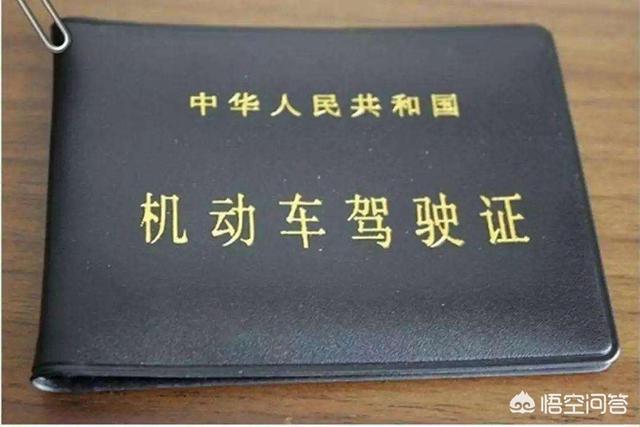 中华人民共和国
机动车驾驶证
悟空问答